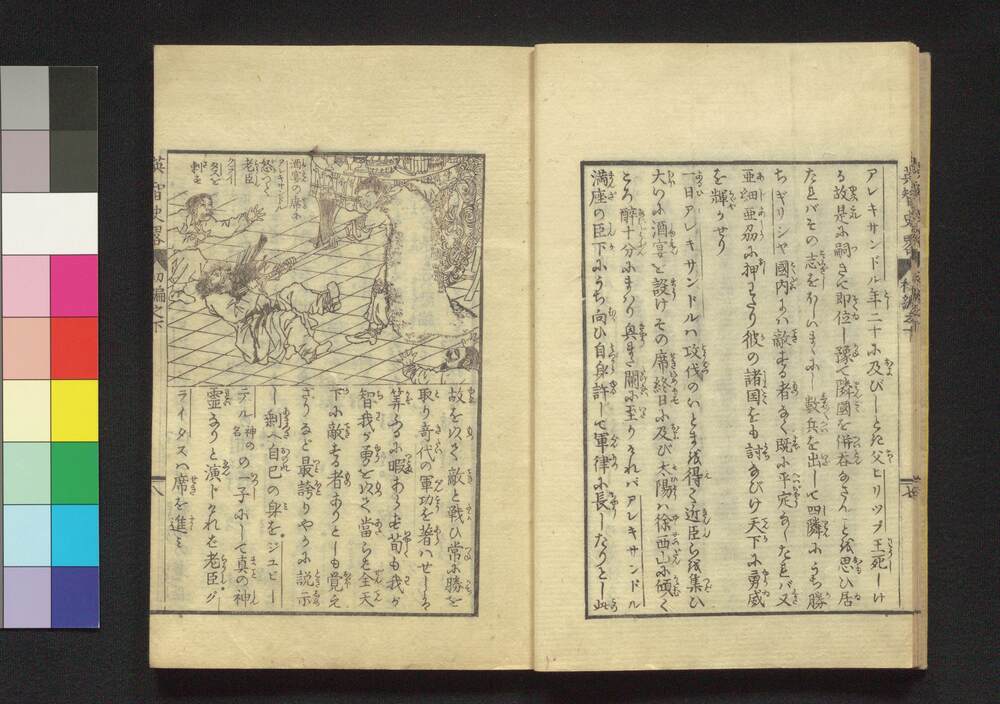 アレキサンドル年二十に及びしとき父ヒリップ王死しけ
る故是に嗣きて即位し豫て隣國を併呑なさんと思ひ居
たれバその志をほしいまゝにし数々兵を出して四隣にうち勝
ちギリシャ國内にハ敵する者なく既に平定なしたれバ又
亜細亜刕に押わたり彼の諸国をも討なびけ天下に勇威
を輝かせり
一日アレキサンドルハ攻伐のいとまを得て近臣らを集ひ
大いに酒宴を設けその席終日に及び太陽ハ徐西山に傾く
ころ酔十分にまハり興まさに闌に至りけれバアレキサンドル
満座の臣下にうち向ひ自身許して軍律に長したりとし此
酒宴の席に
アレキサンドル
怒つて
老臣
クライ
タスを
刺す
故を以て敵と戦ひ常に勝を
取り奇代の軍功を著ハせしる
算ふるに暇あらず苟も我が
智我が勇を以て當らバ全天
下に敵する者ありとも覚え
ざりると最誇りやかに説示
し剰へ自己の身をジユピー
テル神の名の一子にして真の神
霊なりと演じければ老臣ク
ライタスハ席を進み
英智史畧
初編之下